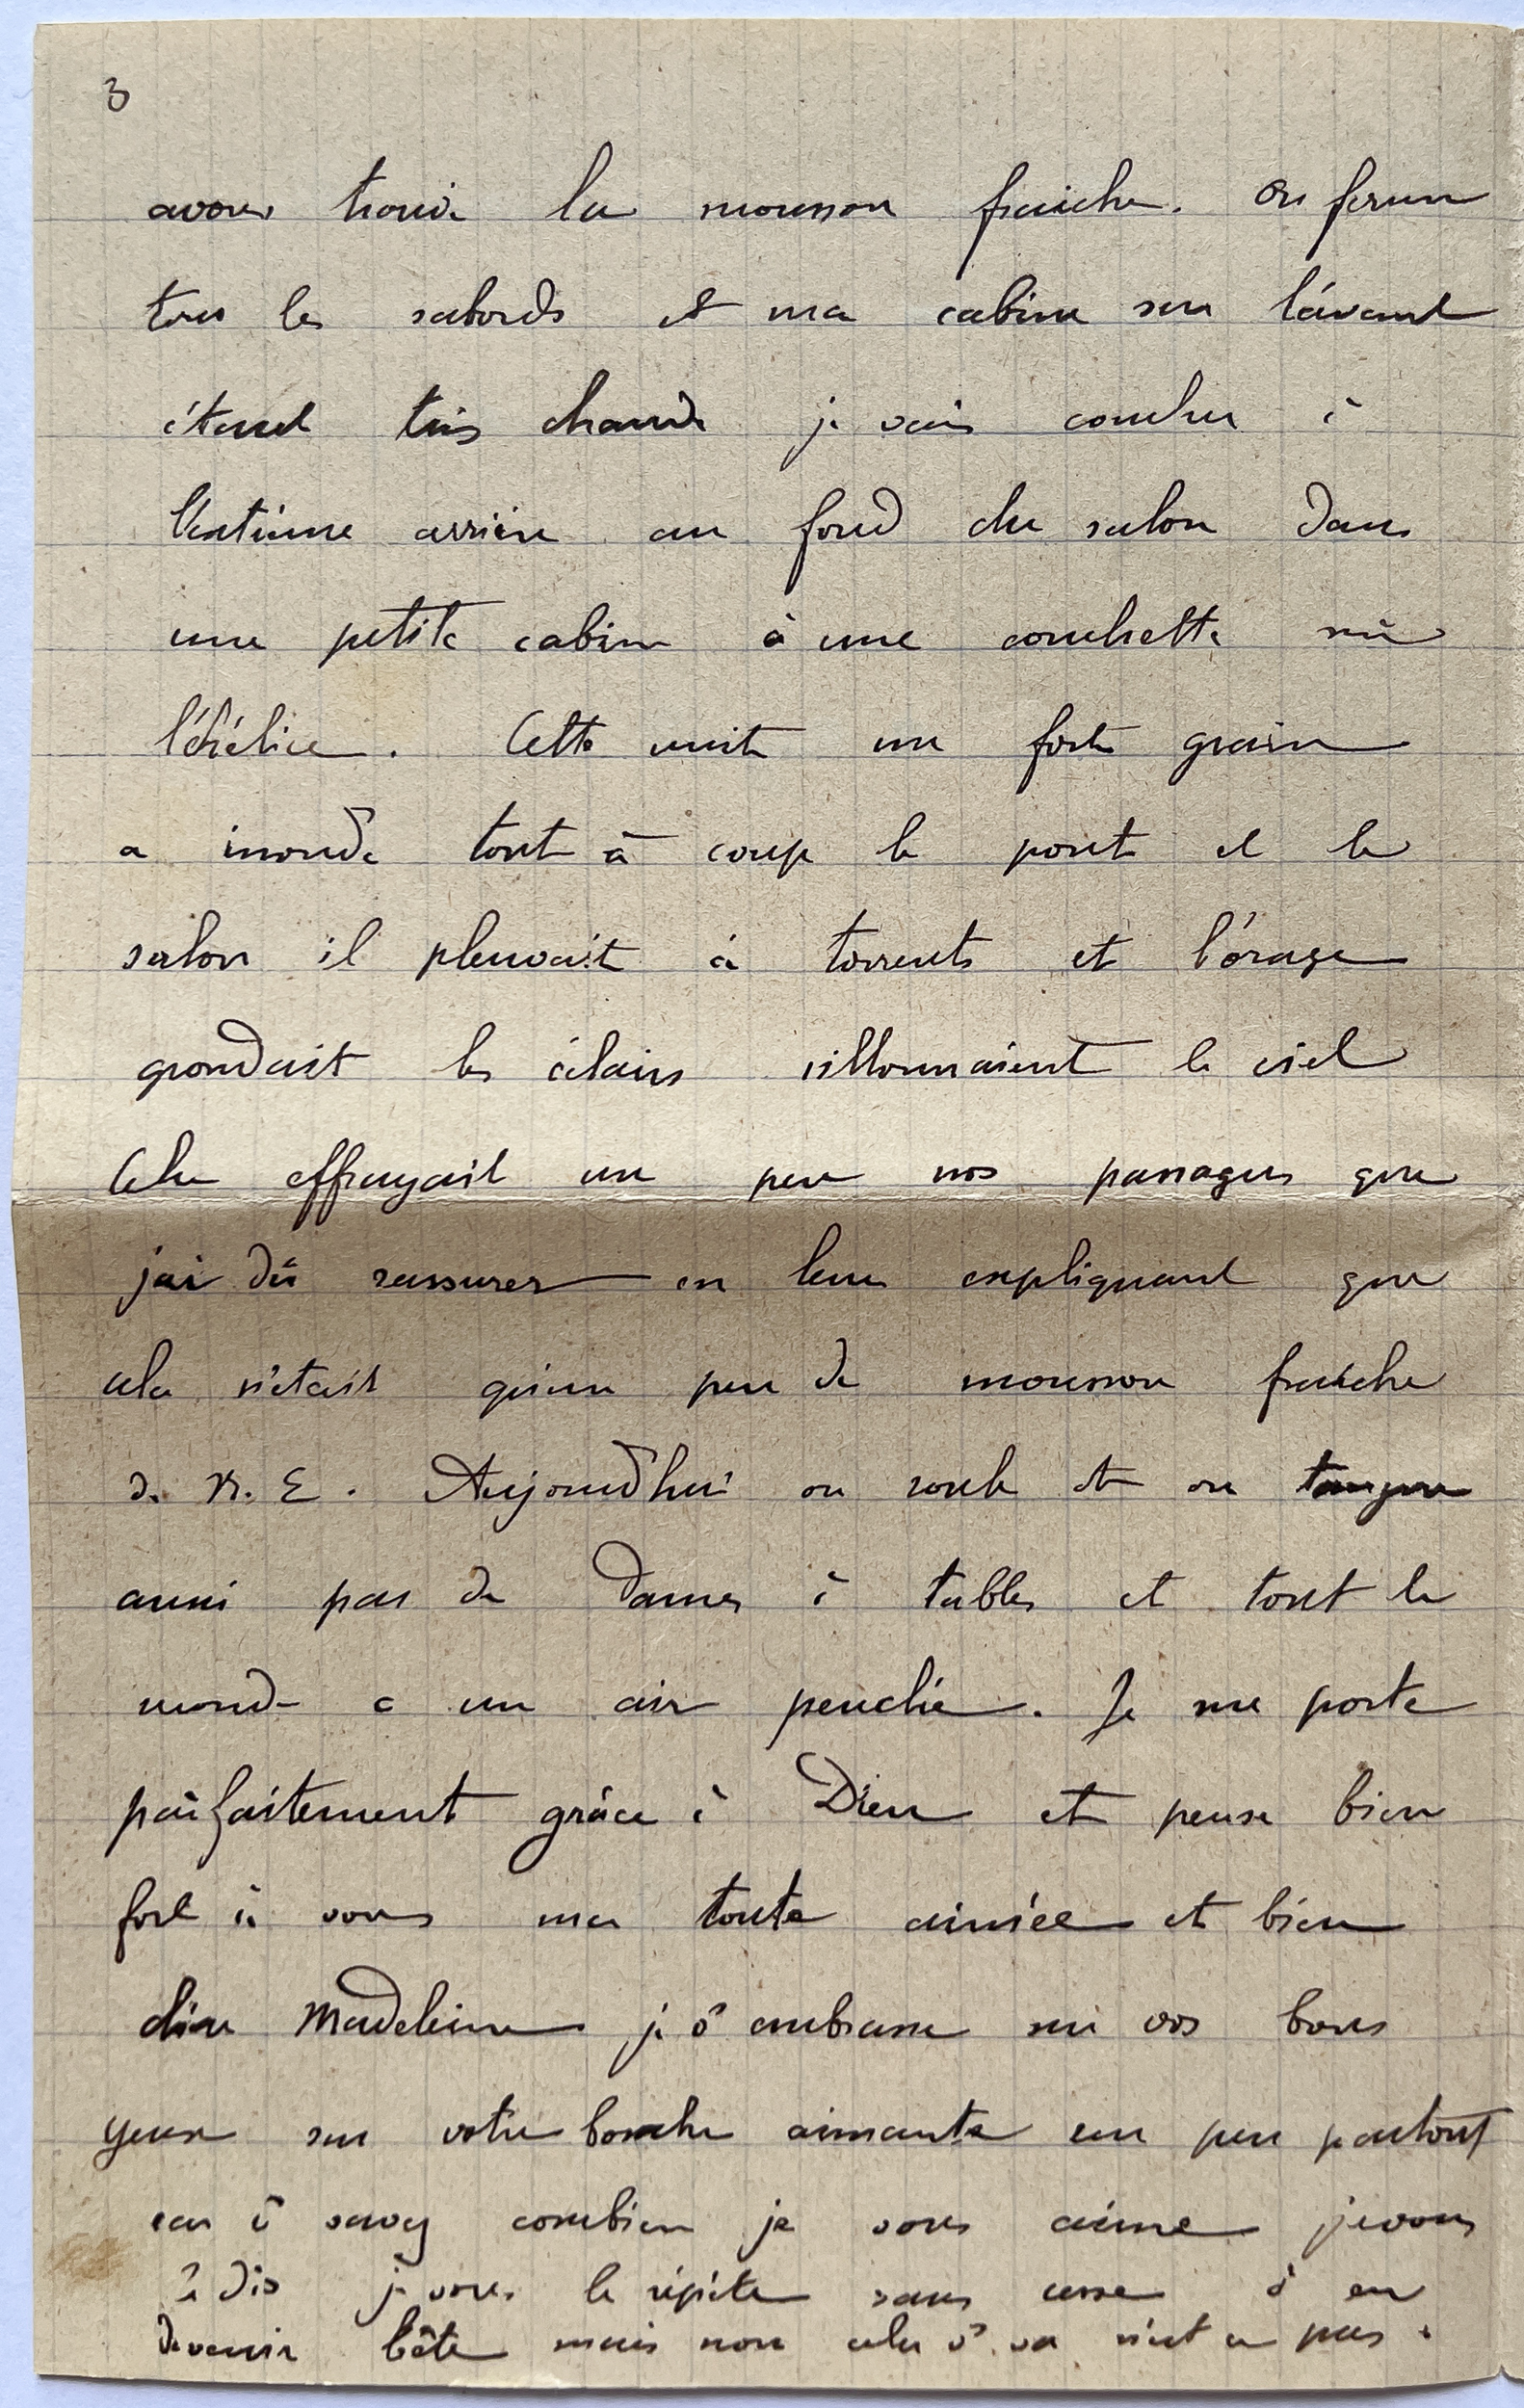 3
avons trouvé la mousson fraiche. On ferme
tous les sabords et ma cabine sur l'avant
étant très chaude je vais coucher à
l'extrême arrière au fond du salon dans
une petite cabine à une couchette sur
l'hélice. Cette nuit un fort grain
a inondé tout à coup le pont et le
salon il pleuvait à torrents et l'orage
grondait les éclairs sillonnaient le ciel
Cela effrayait un peu nos passagers que
j'ai dû rassurer en leur expliquant que
cela n'était qu'un peu de mousson fraiche
d. N. E. Aujourd'hui on roule et on tangue
aussi pas de dames à tables et tout le
monde a un air penché. Je me porte
parfaitement grâce à Dieu et pense bien
fort à vous ma toute aimée et bien
chère Madeleine je v embrasse sur vos bons
yeux sur votre bouche aimante un peu partout
car v savez combien je vous aime je vous
le dis je vous le répète sans cesse à en
devenir bête mais non cela v va n'est ce pas.